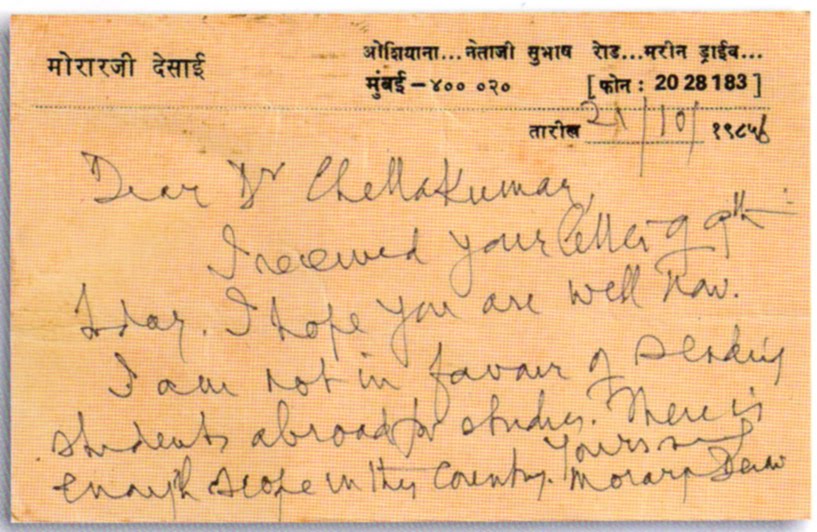 मोरारजी देसाई
ओशियाना...नेताजी सुभाष रोड...मरीन ड्राईव...
मुंबई – ४०० ०२०
[ फोन : 20 28 183 ]
तारीख 21/10/ १९८५6
Dear Dr Chellakumar,
I received your letter of 9th
today. I hope you are well now.
I am not in favour of sending
students abroad for studies. There is
enough scope in this country.
Yours
Morarji Desai